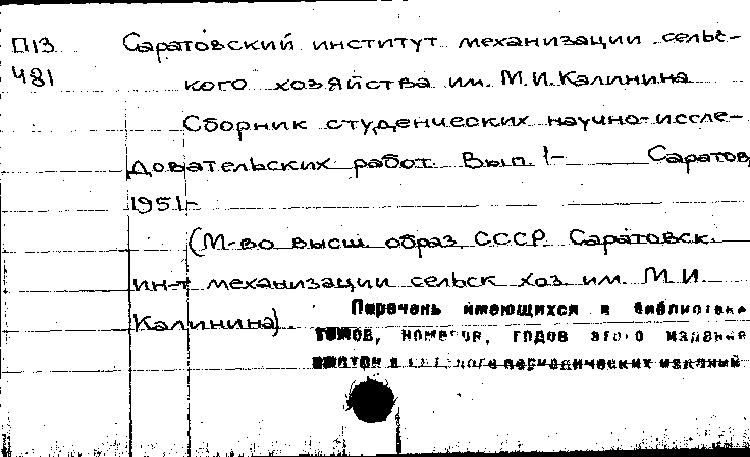 П13 Саратовский институт механизации сельс-
Ч81 кого хозяйства им. М.И.Калинина
Сборник студенческих научно-иссле-
довательских работ. Вып. 1- Саратов,
1951-
(М-во высш. образ. СССР. Саратовск.
ин-т механизации сельск. хоз. им. М.И.
Калинина).
Перечень имеющихся в библиотеке
томов, номеров, годов этого издания
периодических изданий